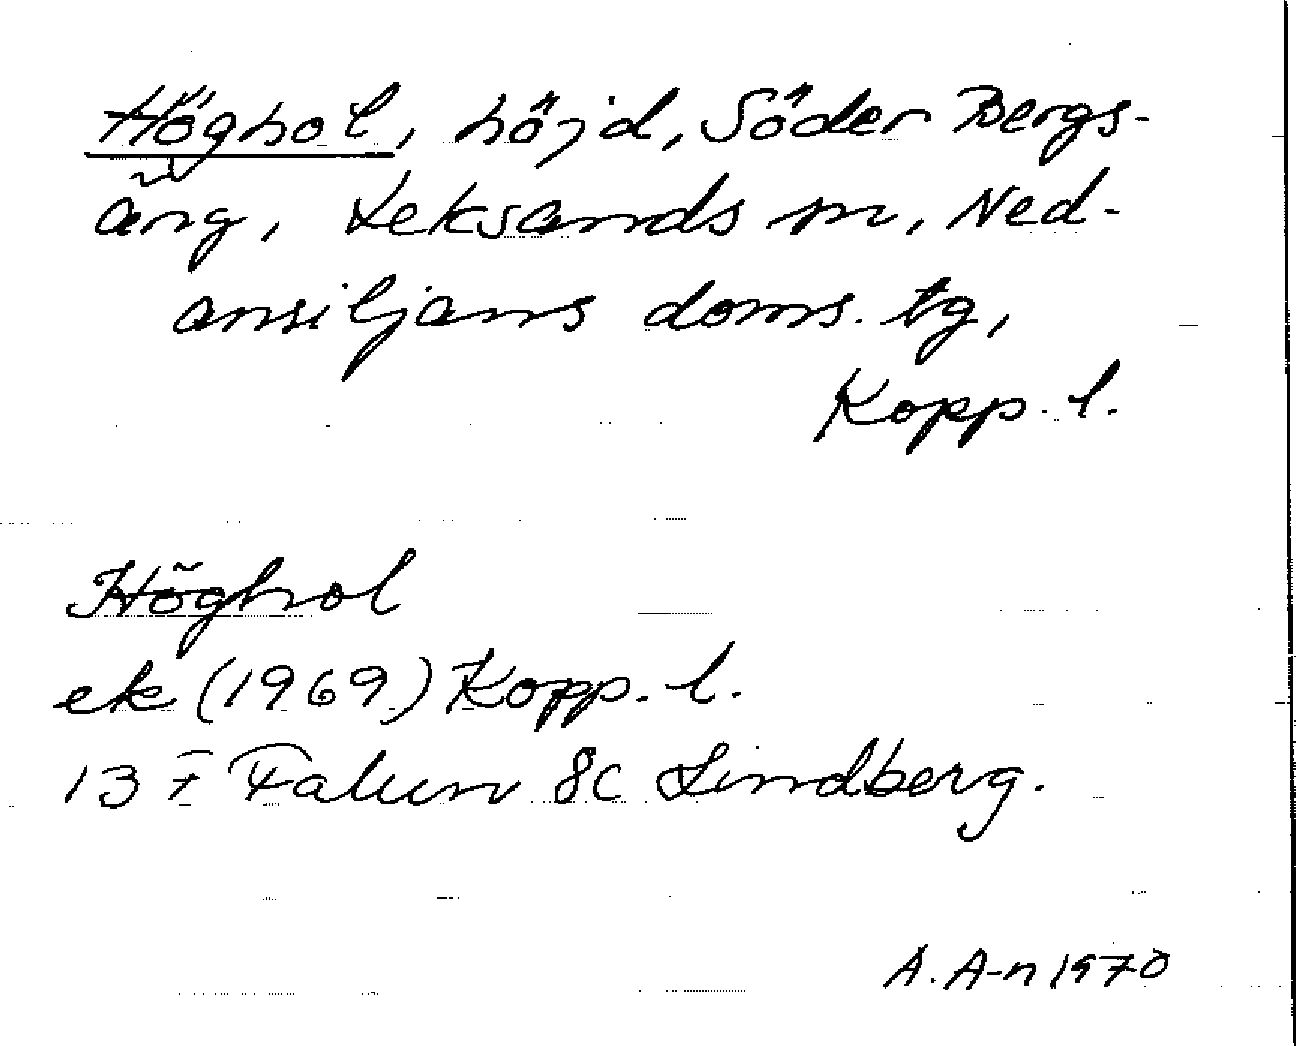 Höghol, höjd, Söder Bergs-
äng, Leksands sn, Ned-
ansiljans doms. tg,
Kopp. l.
Höghol
ek (1969) Kopp. l.
13 F Falun 8c Lindberg.
A. A-n 1970